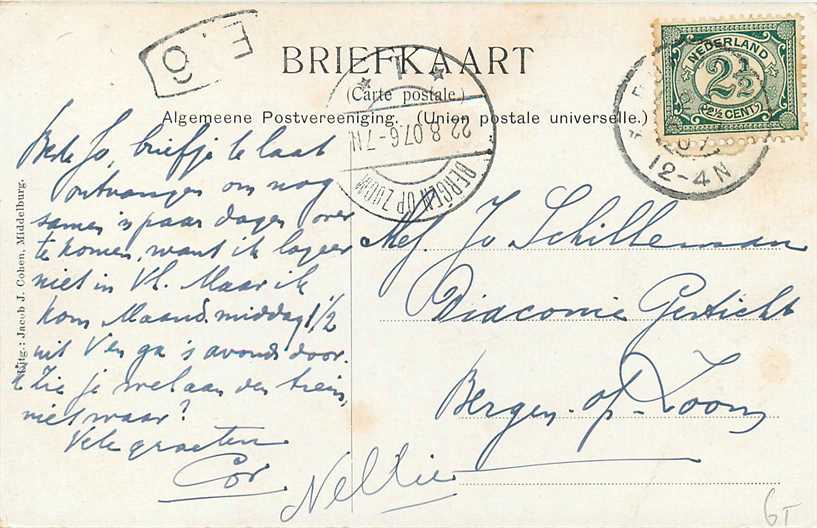 E. O
BRIEFKAART
(Carte postale.)
Algemeene Postvereeniging. (Union postale universelle.)
NEDERLAND
2½
2½ CENT
12-4N
1
22.8.07.6-7N
BERGEN OP ZOOM
Uitg.: Jacob J. Cohen, Middelburg.
Beste Jo, briefje te laat
ontvangen om nog
samen 'n paar dagen over
te komen, want ik logeer
niet in Vl. Maar ik
kom Maand. middag 1 1/2
uit V en ga 's avonds door.
Zie je wel aan den trein,
niet waar?
Vele groeten
Cor
Nellie
Mej. Jo Schilleman
Diaconie Gesticht
Bergen op Zoom
6T